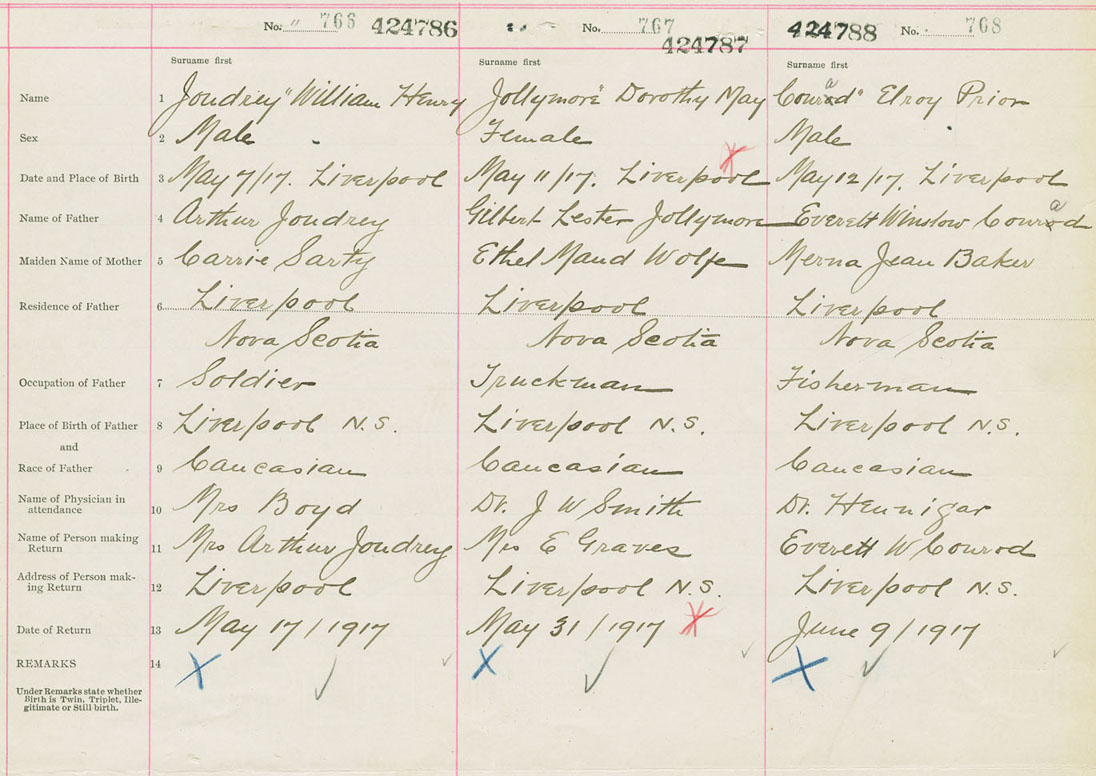 No. " 766 424786 No. 767 424787 424788 No. 768
Surname first Surname first Surname first
Name 1 Joudrey" William Henry Jollymore" Dorothy May Conrod" a Elroy Prior
Sex 2 Male Female Male
Date and Place of Birth 3 May 7/17. Liverpool May 11/17. Liverpool May 12/17. Liverpool
Name of Father 4 Arthur Joudrey Gilbert Lester Jollymore Everett Winslow Conrod a
Maiden Name of Mother 5 Carrie Sarty Ethel Maud Wolfe Merna Jean Baker
Residence of Father 6 Liverpool Liverpool Liverpool
Nova Scotia Nova Scotia Nova Scotia
Occupation of Father 7 Soldier Truckman Fisherman
Place of Birth of Father 8 Liverpool N.S. Liverpool N.S. Liverpool N.S.
and
Race of Father 9 Caucasian Caucasian Caucasian
Name of Physician in
attendance 10 Mrs Boyd Dr. J W Smith Dr. Hennigar
Name of Person making
Return 11 Mrs Arthur Joudrey Mrs E Graves Everett W Conrod
Address of Person mak-
ing Return 12 Liverpool Liverpool N.S. Liverpool N.S.
Date of Return 13 May 17/1917 May 31/1917 June 9/1917
REMARKS 14 X X X
Under Remarks state whether
Birth is Twin, Triplet, Ille-
gitimate or Still birth.